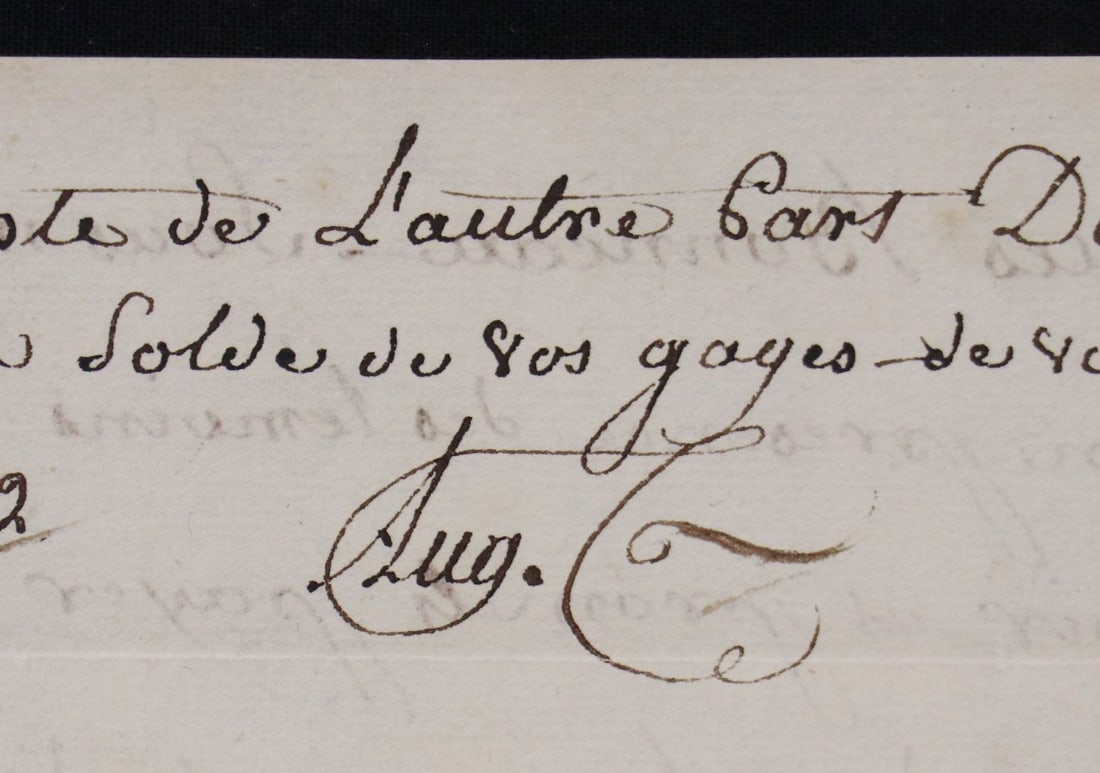 pte de L'autre Part D
Solde de vos gages de vo
2
Aug.